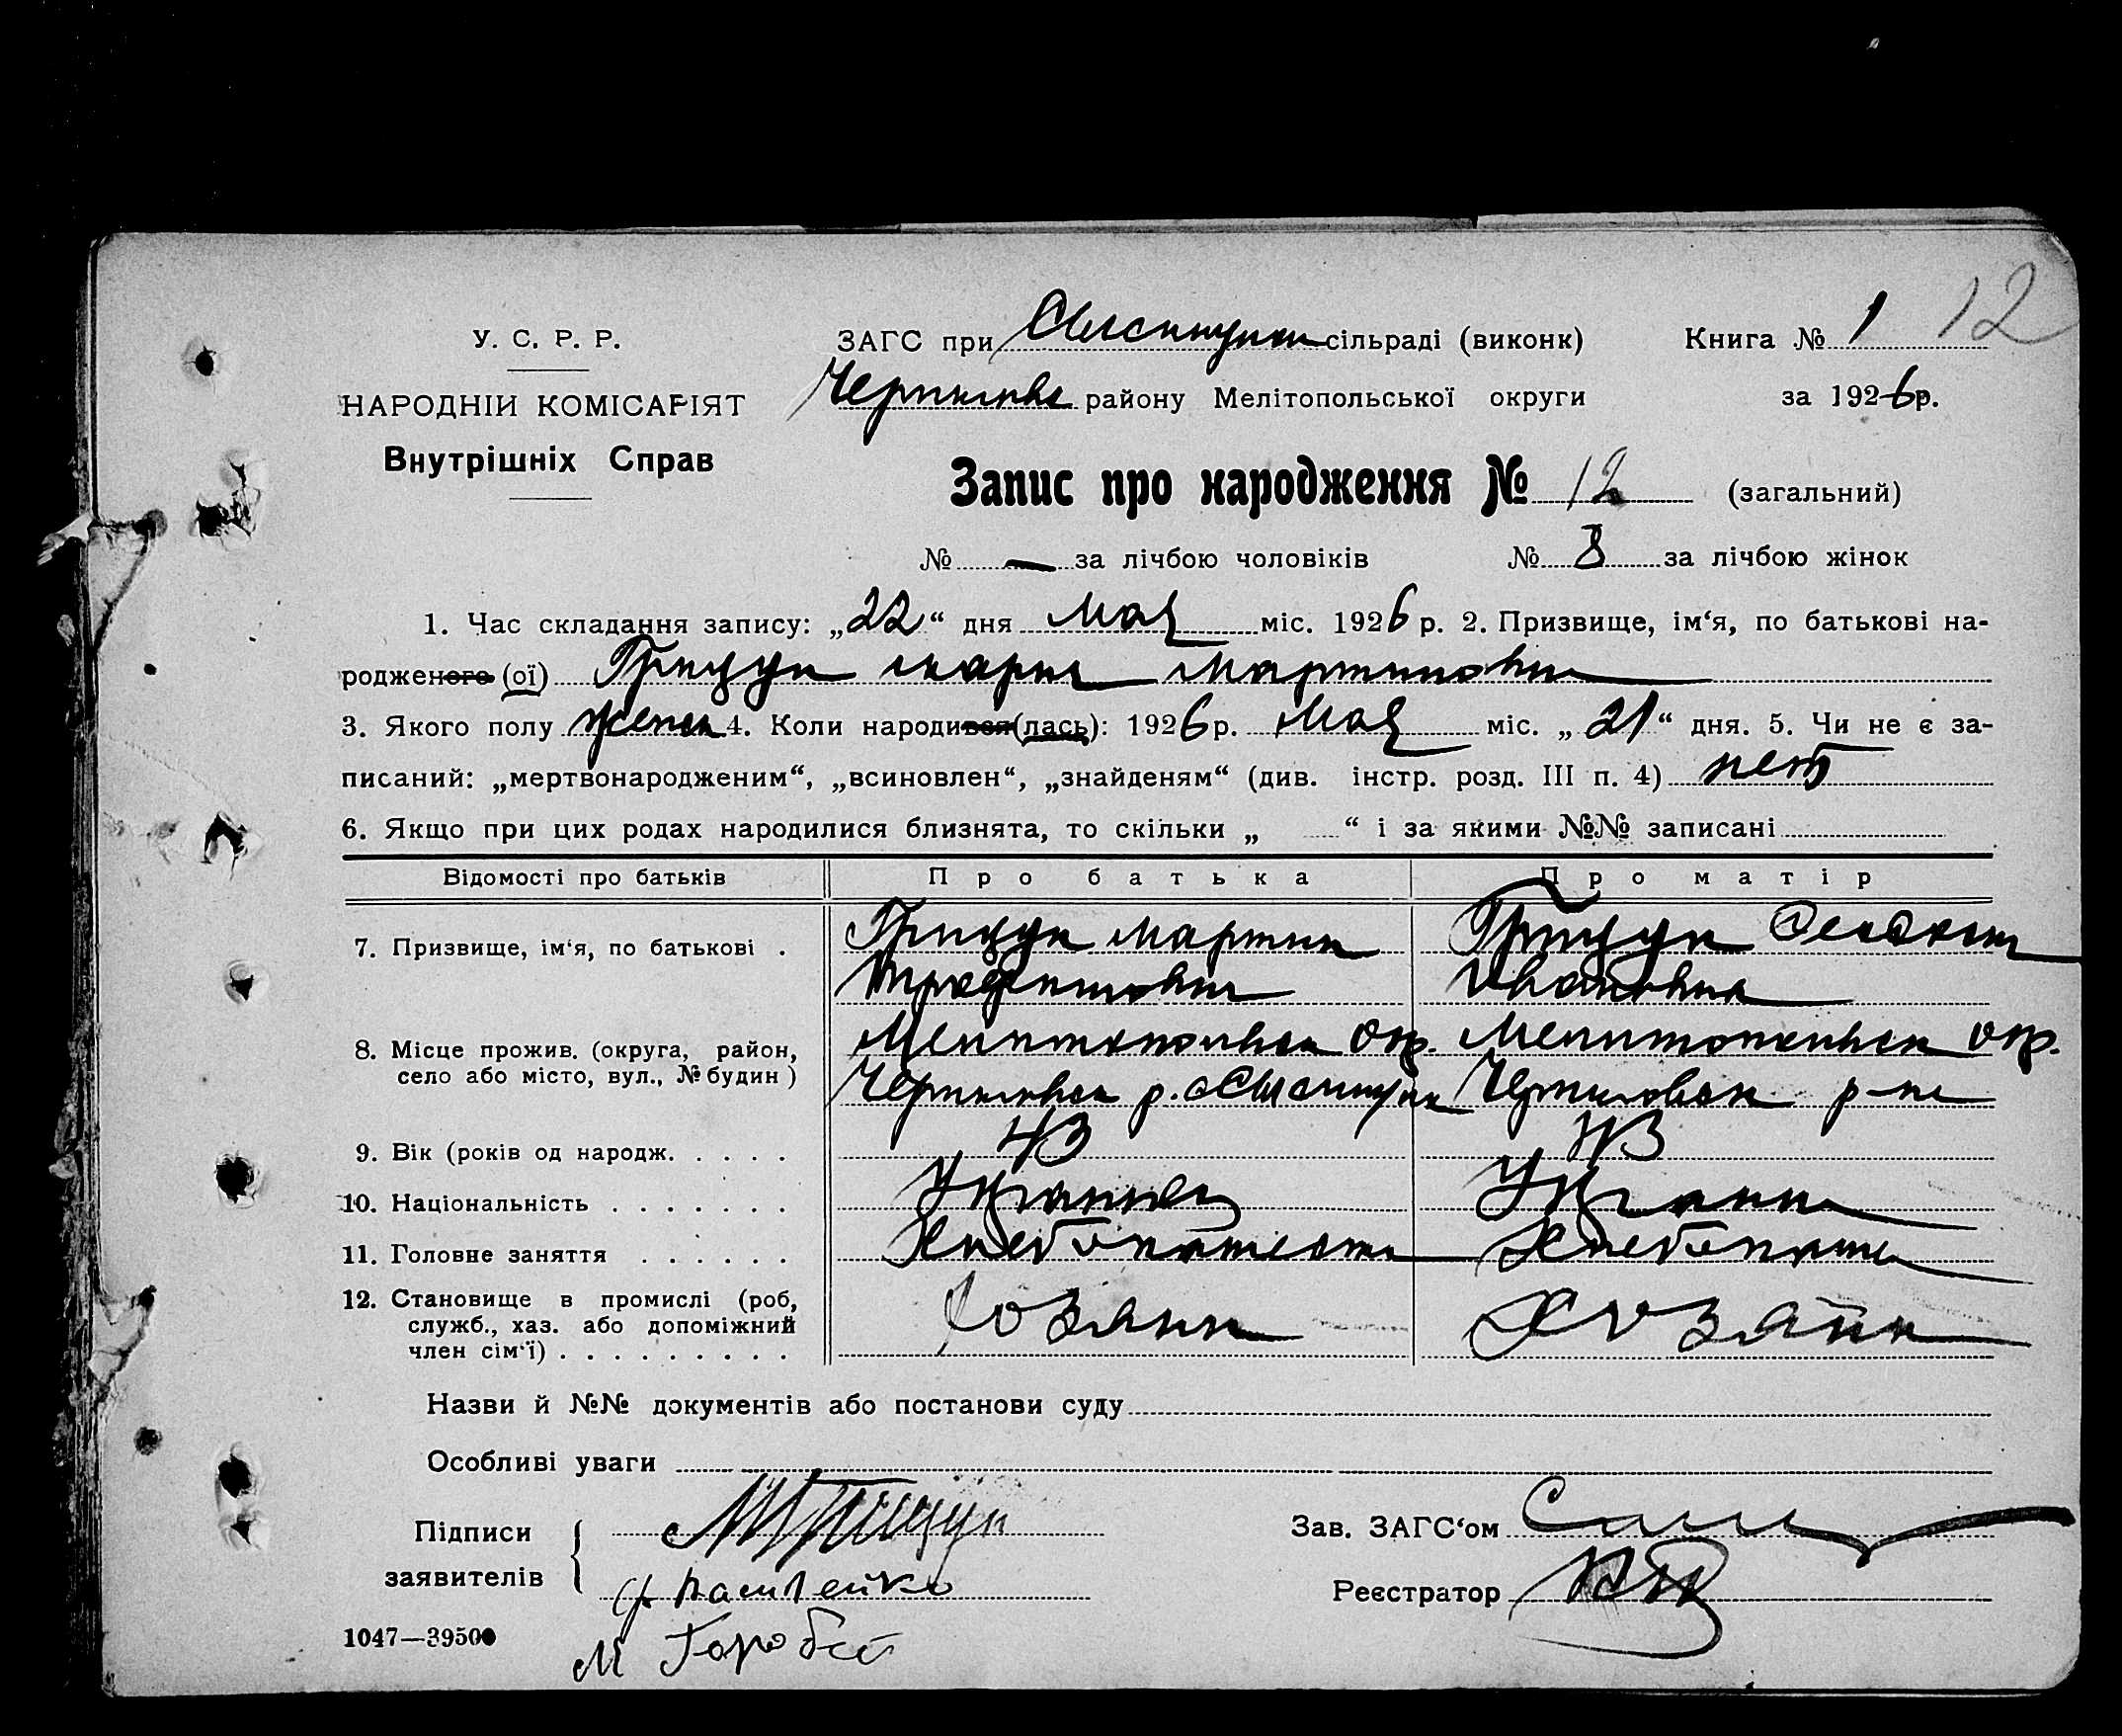 12
У. С. Р. Р.
НАРОДНІЙ КОМІСАРІЯТ
Внутрішніх Справ
ЗАГС при сільраді (виконк) Книга № 1
району Мелітопольської округи за 1926 р.
Запис про народження № 12 (загальний)
№ — за лічбою чоловіків № 8 за лічбою жінок
1. Час складання запису: „22“ дня Мая міс. 1926 р. 2. Призвище, ім‘я, по батькові на-
родженого (ої) Грищук Мария Мартиновна
3. Якого полу женск 4. Коли народився (лась): 1926 р. Мая міс. „21“ дня. 5. Чи не є за-
писаний: „мертвонародженим“, „всиновлен“, „знайденям“ (див. інстр. розд. III п. 4) нет
6. Якщо при цих родах народилися близнята, то скільки „ “ і за якими №№ записані
Відомості про батьків Про батька Про матір
7. Призвище, ім‘я, по батькові . Грищук Мартин Грищук
Ивановна
8. Місце прожив. (округа, район, Мелитопольск окр. Мелитопольск окр.
село або місто, вул., № будин) р. р-на
9. Вік (років од народж. . . . . 43 43
10. Національність . . . . . . . Украинец Украин
11. Головне заняття . . . . . . Хлебопашество Хлебопаше
12. Становище в промислі (роб, Хозяин Хозяйк
служб., хаз. або допоміжний
член сім‘ї) . . . . . . . . .
Назви й №№ документів або постанови суду
Особливі уваги
Підписи МГрищук Зав. ЗАГС‘ом
заявителів Реєстратор
1047—39500 М Горобей